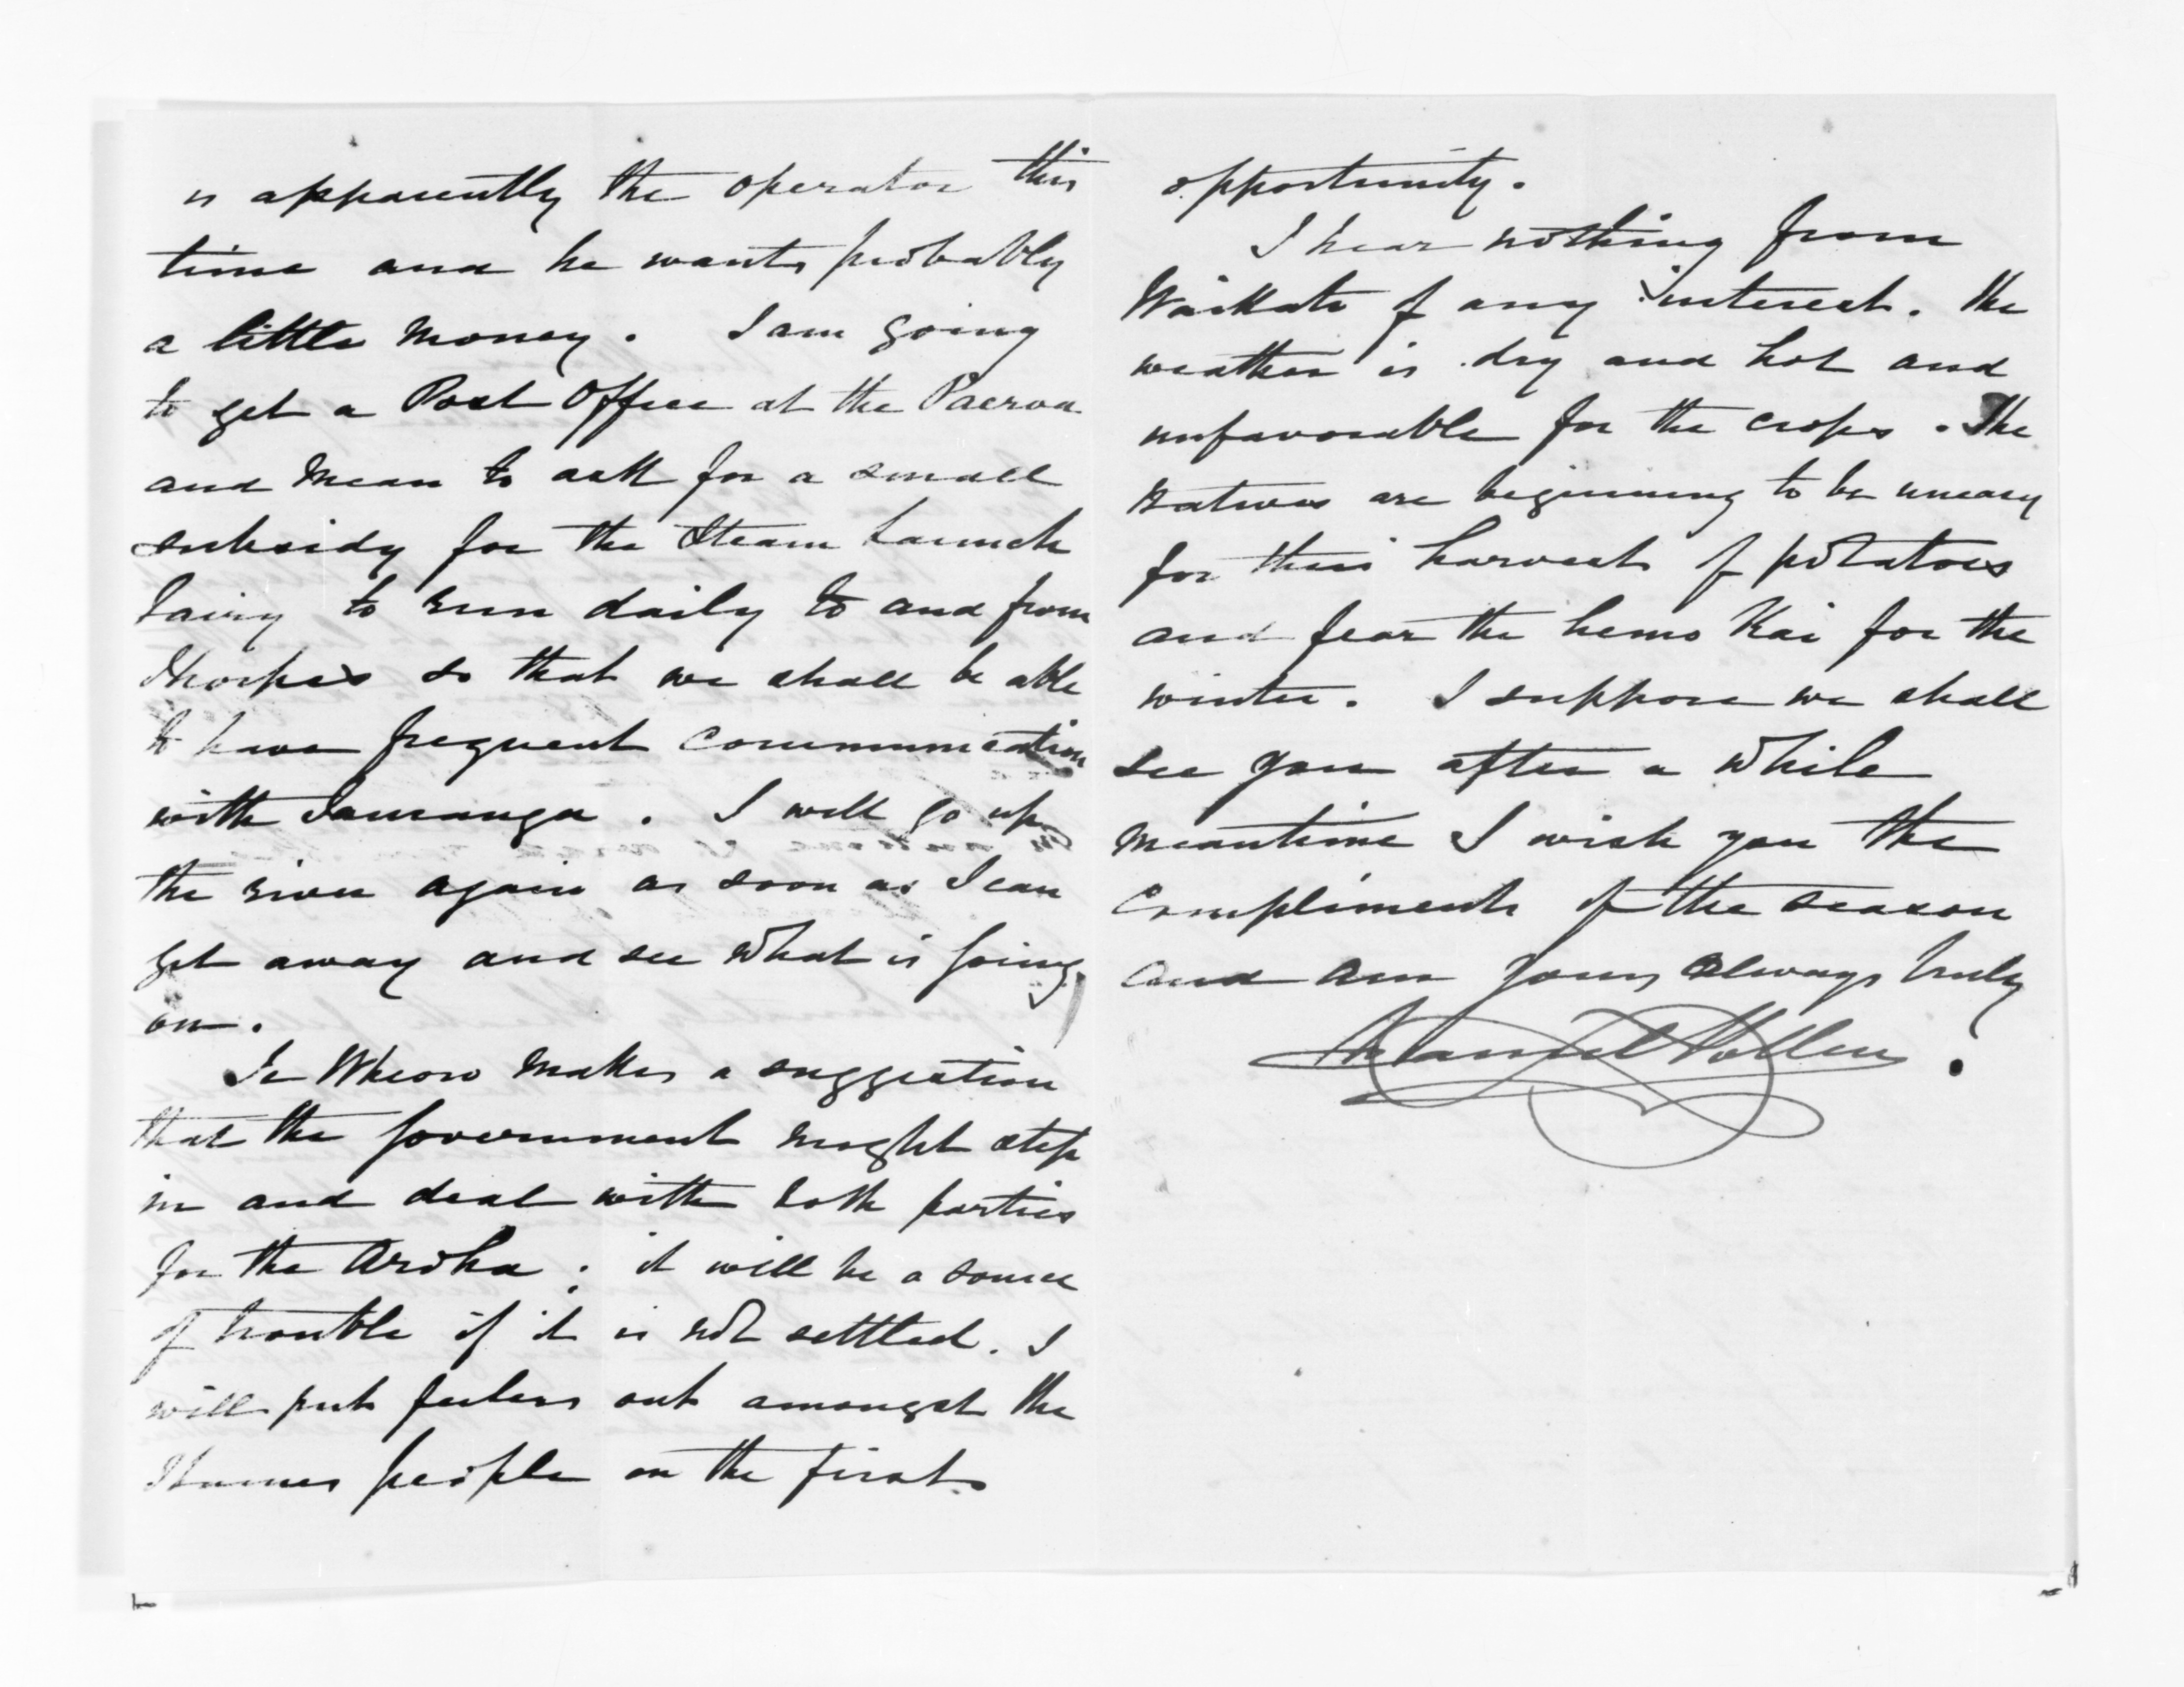 is apparently the operator this
time and he wants probably
a little money. I am going
to get a Post Office at the Paeroa
and mean to ask for a small
subsidy for the Steam Launch
Fairy to run daily to and from
Thorpes so that we shall be able
to have frequent communication
with Tauranga. I will go up
the river again as soon as I can
get away and see what is going
on.
Te Wheoro makes a suggestion
that the Government might step
in and deal with both parties
for the Aroha; it will be a source
of trouble if it is not settled. I
will put feelers out amongst the
Thames people on the first
opportunity.
I hear nothing from
Waikato of any interest. The
weather is dry and hot and
unfavorable for the crops. The
natives are beginning to be uneasy
for their harvest of potatoes
and fear the hemo Kai for the
winter. I suppose we shall
see you after a while
meantime I wish you the
Compliments of the season
and am yours always truly
Daniel Pollen.